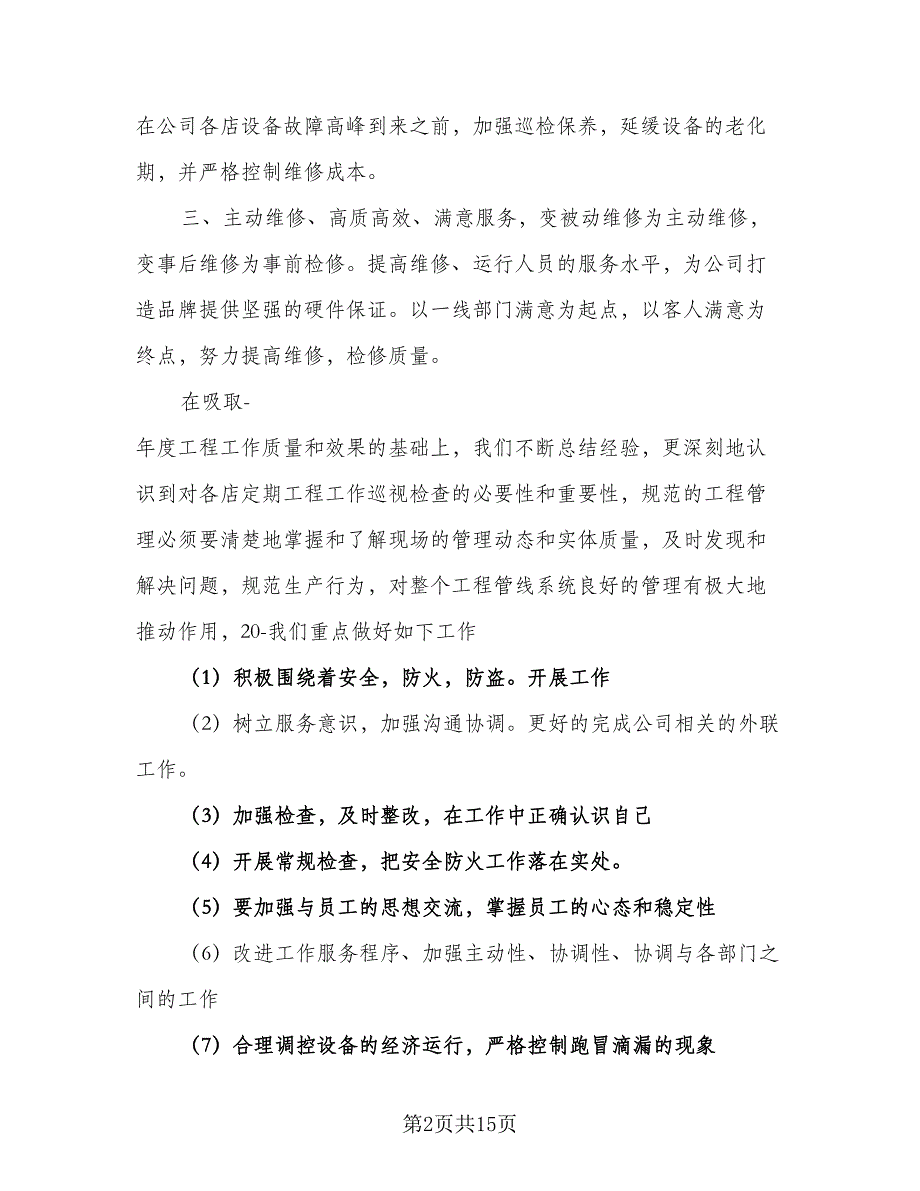 在公司各店设备故障高峰到来之前，加强巡检保养，延缓设备的老化
期，并严格控制维修成本。
三、主动维修、高质高效、满意服务，变被动维修为主动维修，
变事后维修为事前检修。提高维修、运行人员的服务水平，为公司打
造品牌提供坚强的硬件保证。以一线部门满意为起点，以客人满意为
终点，努力提高维修，检修质量。
在吸取-
年度工程工作质量和效果的基础上，我们不断总结经验，更深刻地认
识到对各店定期工程工作巡视检查的必要性和重要性，规范的工程管
理必须要清楚地掌握和了解现场的管理动态和实体质量，及时发现和
解决问题，规范生产行为，对整个工程管线系统良好的管理有极大地
推动作用，20-我们重点做好如下工作
（1）积极围绕着安全，防火，防盗。开展工作
（2）树立服务意识，加强沟通协调。更好的完成公司相关的外联
工作。
（3）加强检查，及时整改，在工作中正确认识自己
（4）开展常规检查，把安全防火工作落在实处。
（5）要加强与员工的思想交流，掌握员工的心态和稳定性
（6）改进工作服务程序、加强主动性、协调性、协调与各部门之
间的工作
（7）合理调控设备的经济运行，严格控制跑冒滴漏的现象
第2页共15页